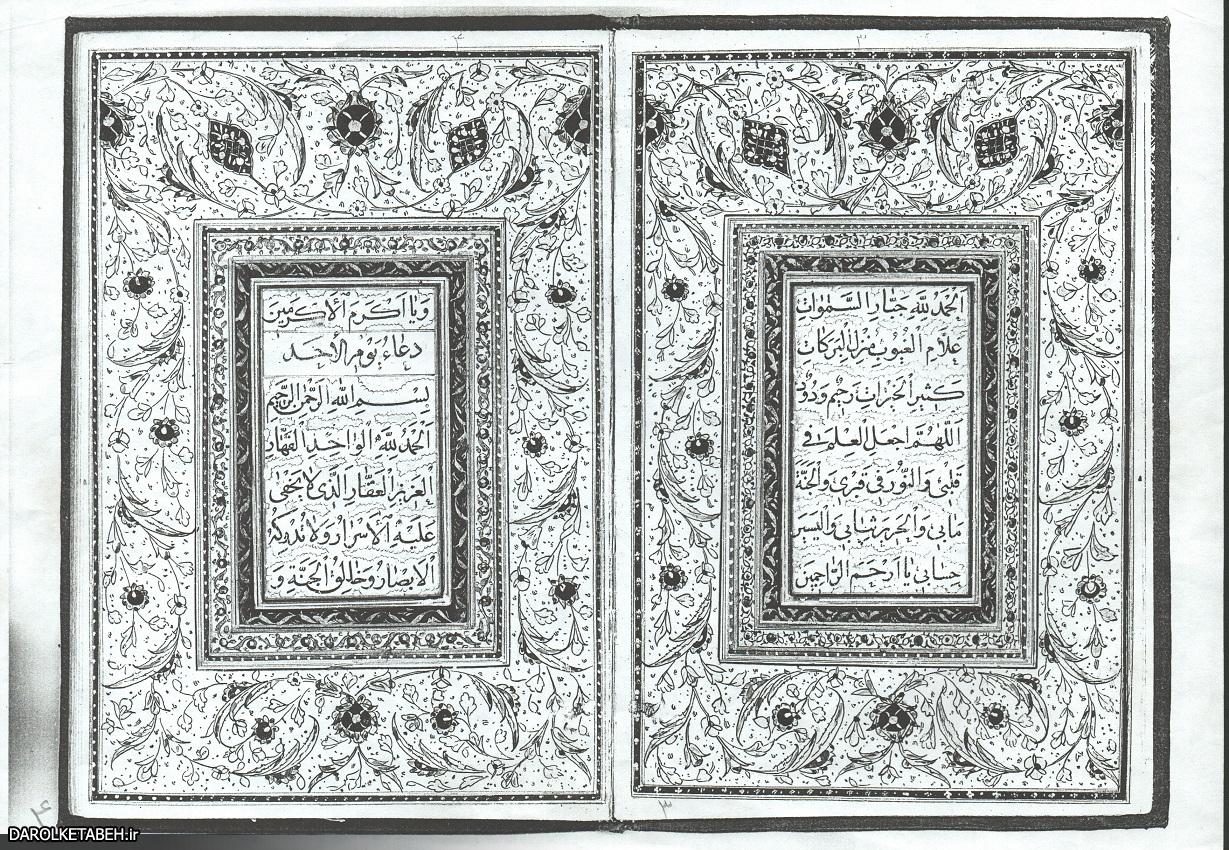 الحمد لله جبار السموات
علام الغيوب منزل البركات
كثير الخيرات رحيم ودود
اللهم اجعل العلم في
قلبي والنور في قبري والجنة
مابي والحرير ثيابي واليسر
حسابي يا ارحم الراحمين
ويا اكرم الاكرمين
دعاء يوم الاحد
بسم الله الرحمن الرحيم
الحمد لله الواحد القهار
العزيز الغفار الذي لا يخفى
عليه الاسرار ولا تدركه
الابصار وخالق الجنة و
۳
۴
DAROLKETABEH.ir